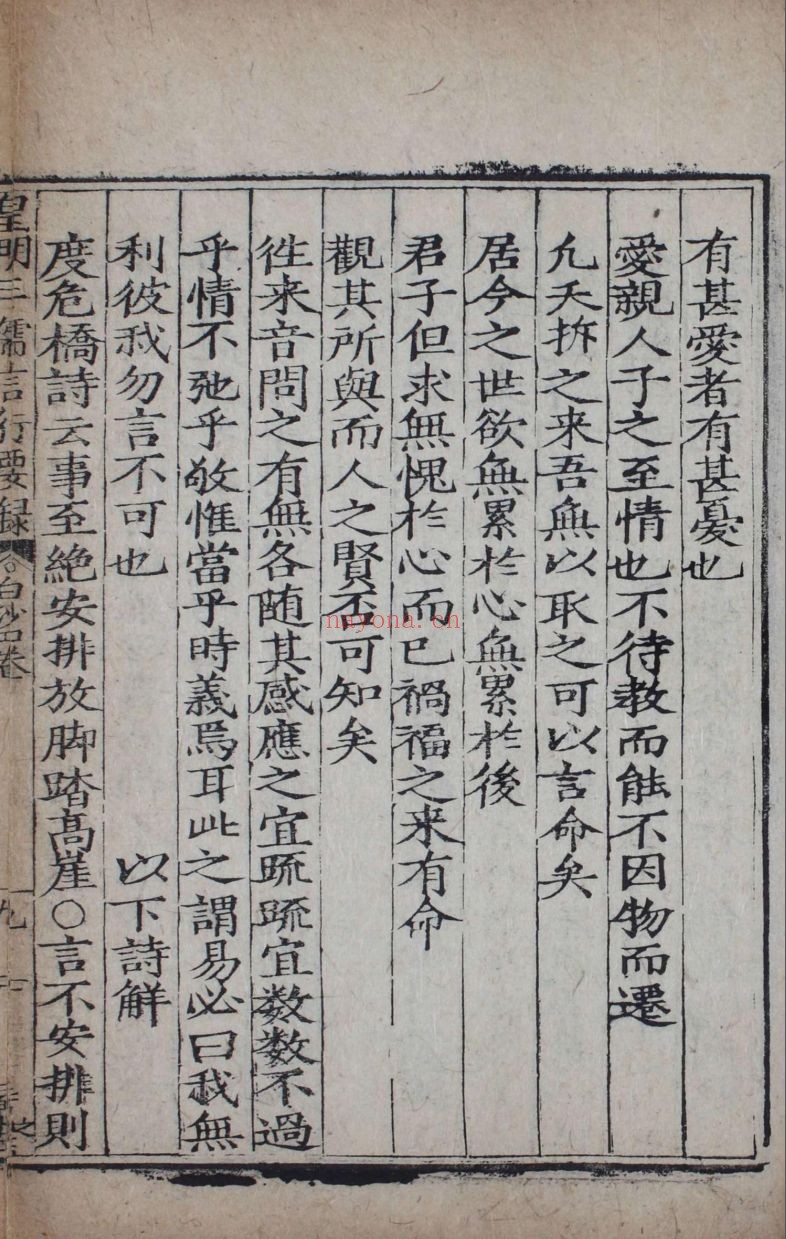 有甚愛者有甚憂也
愛親人子之至情也不待教而能不因物而遷
凢天拆之来吾無以取之可以言命矣
居今之世欲無累扵心無累扵後
君子但求無愧扵心而已禍福之来有命
觀其所與而人之賢否可知矣
徃来音問之有無各随其感應之宜䟽䟽宜数数不過
乎情不弛乎敬惟當乎時義焉耳此之謂易必曰我無
利彼我勿言不可也
以下詩解
度危橋詩云事至絶安排放脚踏髙崖○言不安排則
皇明三儒言行要録
白沙卷
九
nayona.cn